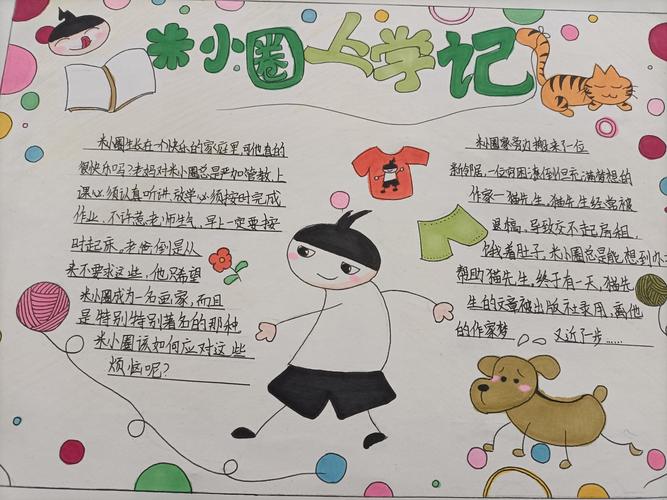 米小圈上学记
米小圈生长在一个快乐的家庭里,可他真的
很快乐吗?老妈对米小圈总是严加管教,上
课必须认真听讲,放学必须按时完成
作业,不许惹老师生气,早上一定要按
时起床。老爸倒是从
来不要求这些,他只希望
米小圈成为一名画家,而且
是特别特别著名的那种
米小圈该如何应对这些
烦恼呢?
米小圈家旁边搬来了一位
新邻居,一位穷困潦倒但充满梦想的
作家—猫先生,猫先生经常被
退稿,导致交不起房租,
饿着肚子,米小圈总是能想到办法
帮助猫先生,终于有一天,猫先
生的文章被出版社录用,离他
的作家梦 又近了一步……